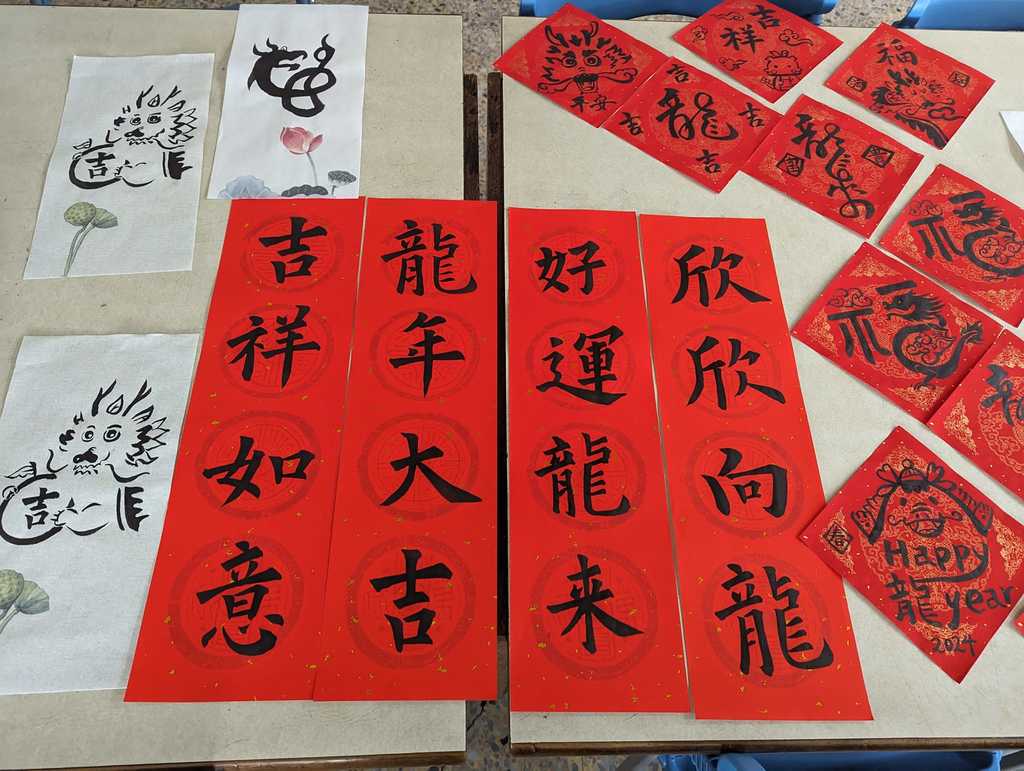 欣欣向龍
好運龍来
龍年大吉
吉祥如意
吉祥
福
平安
吉
龍
吉
吉
吉
吉
福
福
春
Happy
龍year
2024